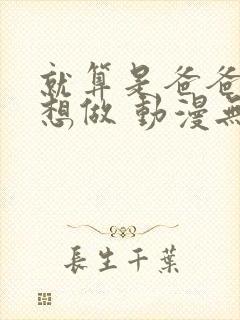 就算是爸爸
想做 動漫無
長生千葉